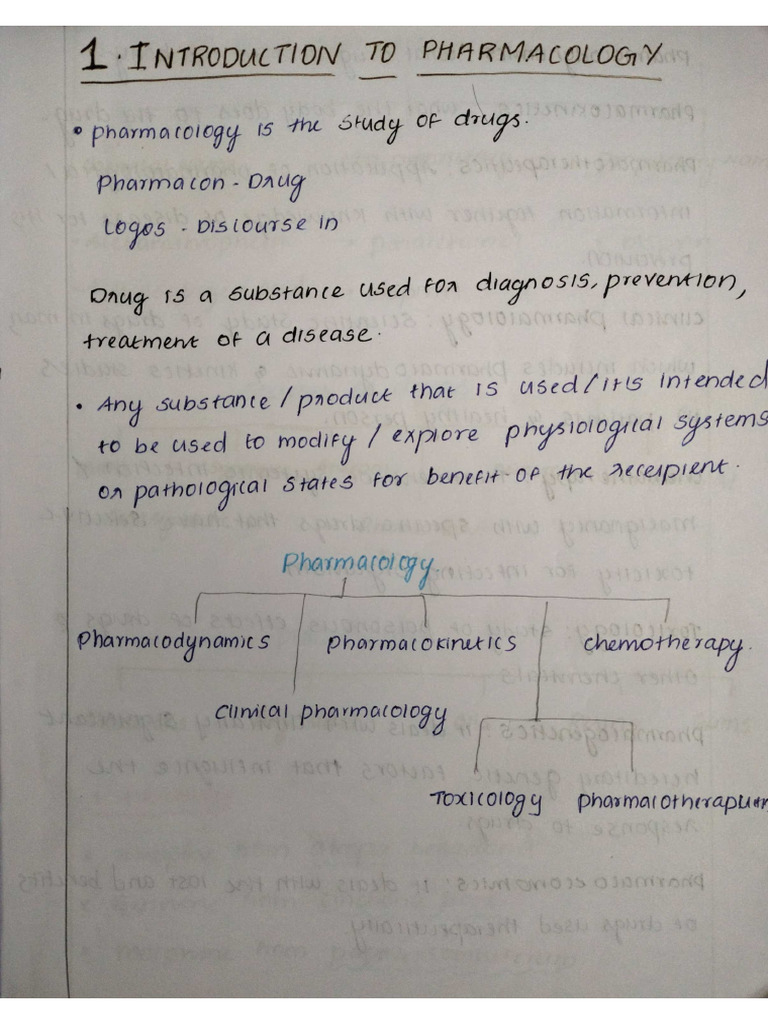 1. INTRODUCTION TO PHARMACOLOGY
• pharmacology is the study of drugs.
Pharmacon - Drug
Logos - Discourse in
Drug is a substance used for diagnosis, prevention,
treatment of a disease.
• Any substance / product that is used / it is intended
to be used to modify / explore physiological systems
or pathological states for benefit of the receipient.
Pharmacology.
Pharmacodynamics pharmacokinetics chemotherapy.
Clinical pharmacology
Toxicology